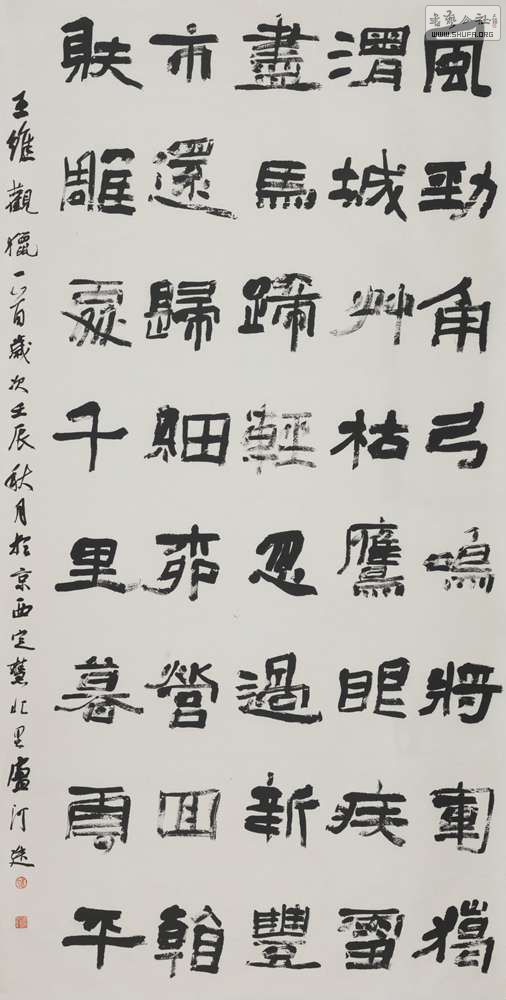 书艺公社
WWW.SHUFA.ORG
風勁角弓鳴將軍獵
渭城艸枯鷹眼疾雪
盡馬蹄輕忽過新豐
市還歸細柳營回看
射雕處千里暮雲平
王維觀獵一首歲次壬辰秋月於京西定慧北里盧